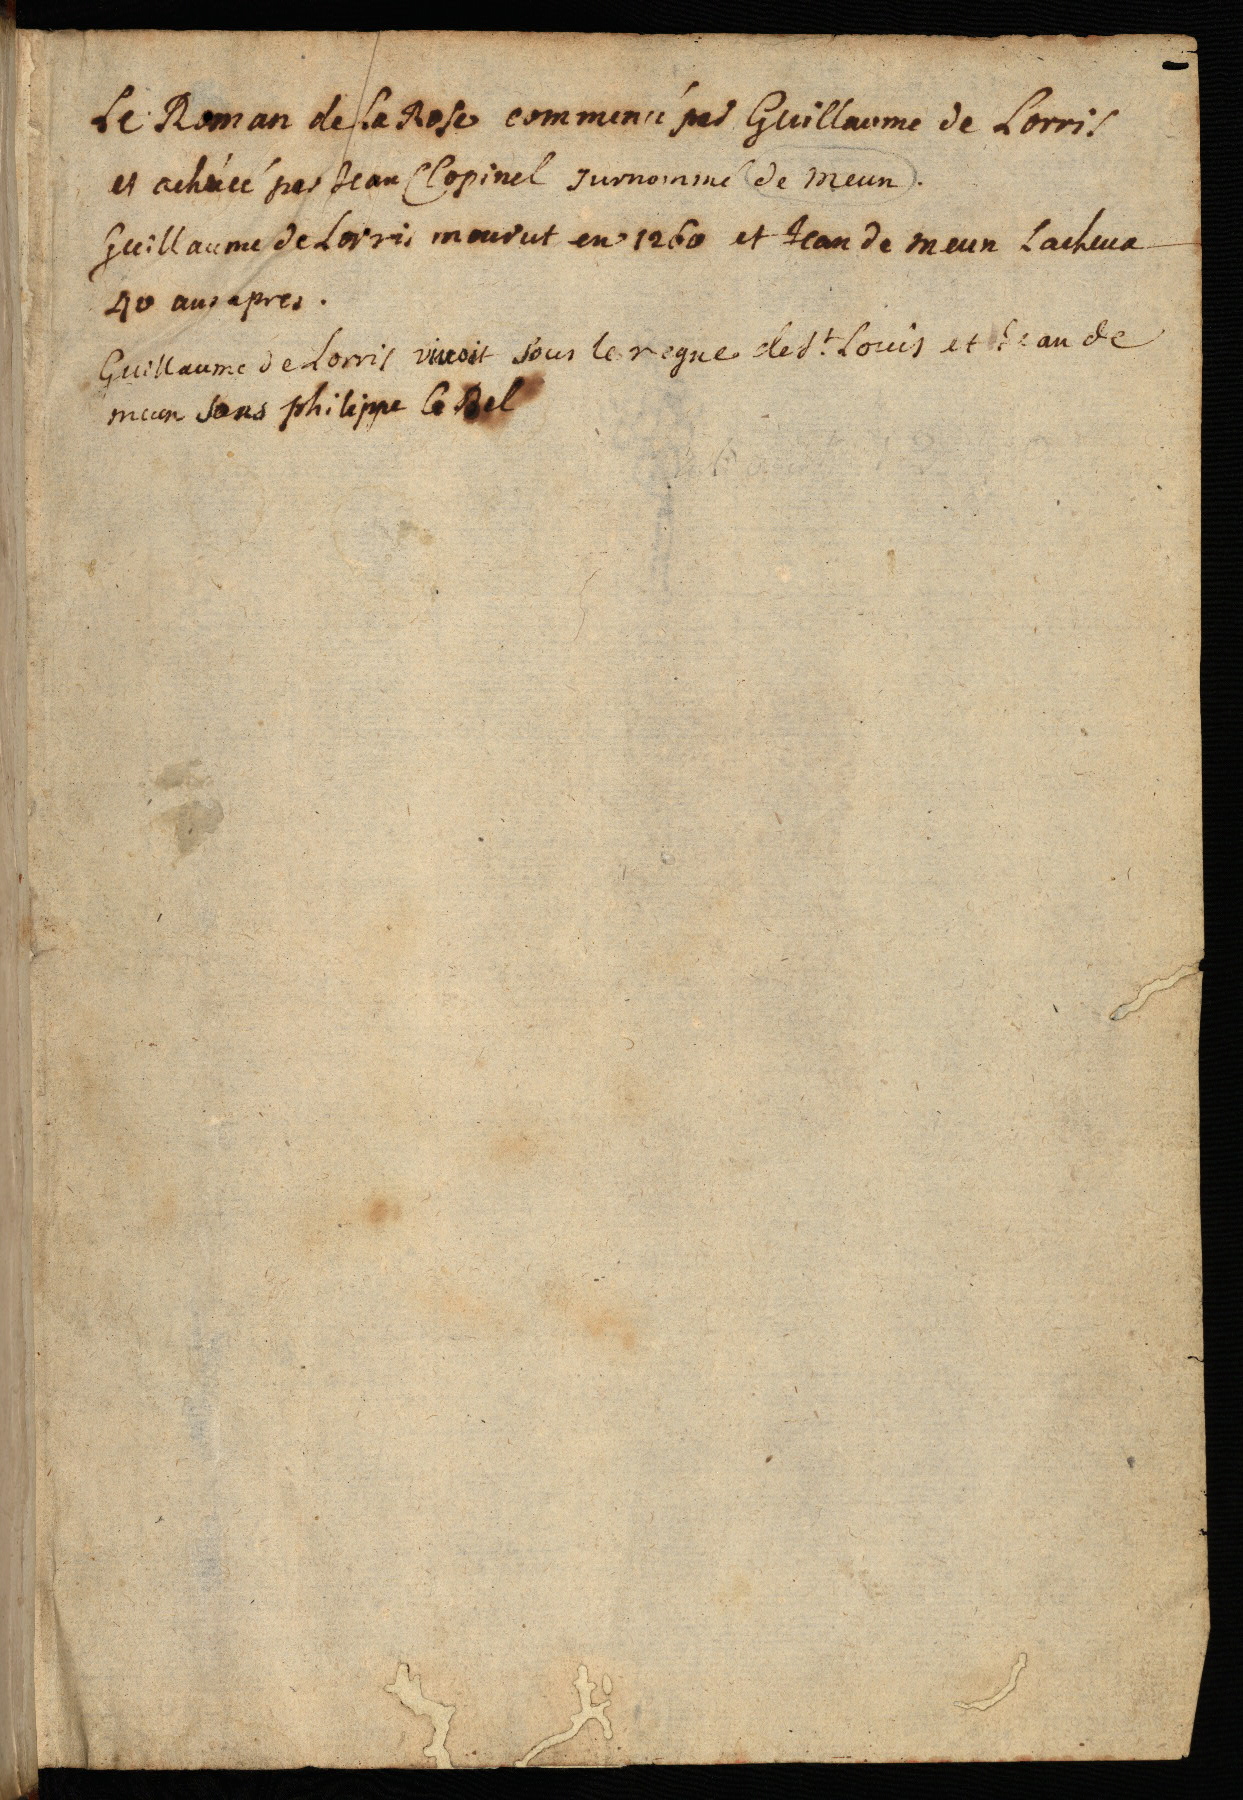 Le Roman de La Rose commencé par Guillaume de Lorris
et acheué par Jean Clopinel surnommé de Meun.
Guillaume de Lorris mourut en 1260 et Jean de meun Lacheua
40 ans apres.
Guillaume de Lorris viuoit sous le regne de St. Louis et Jean de
meun sous philippe le Bel